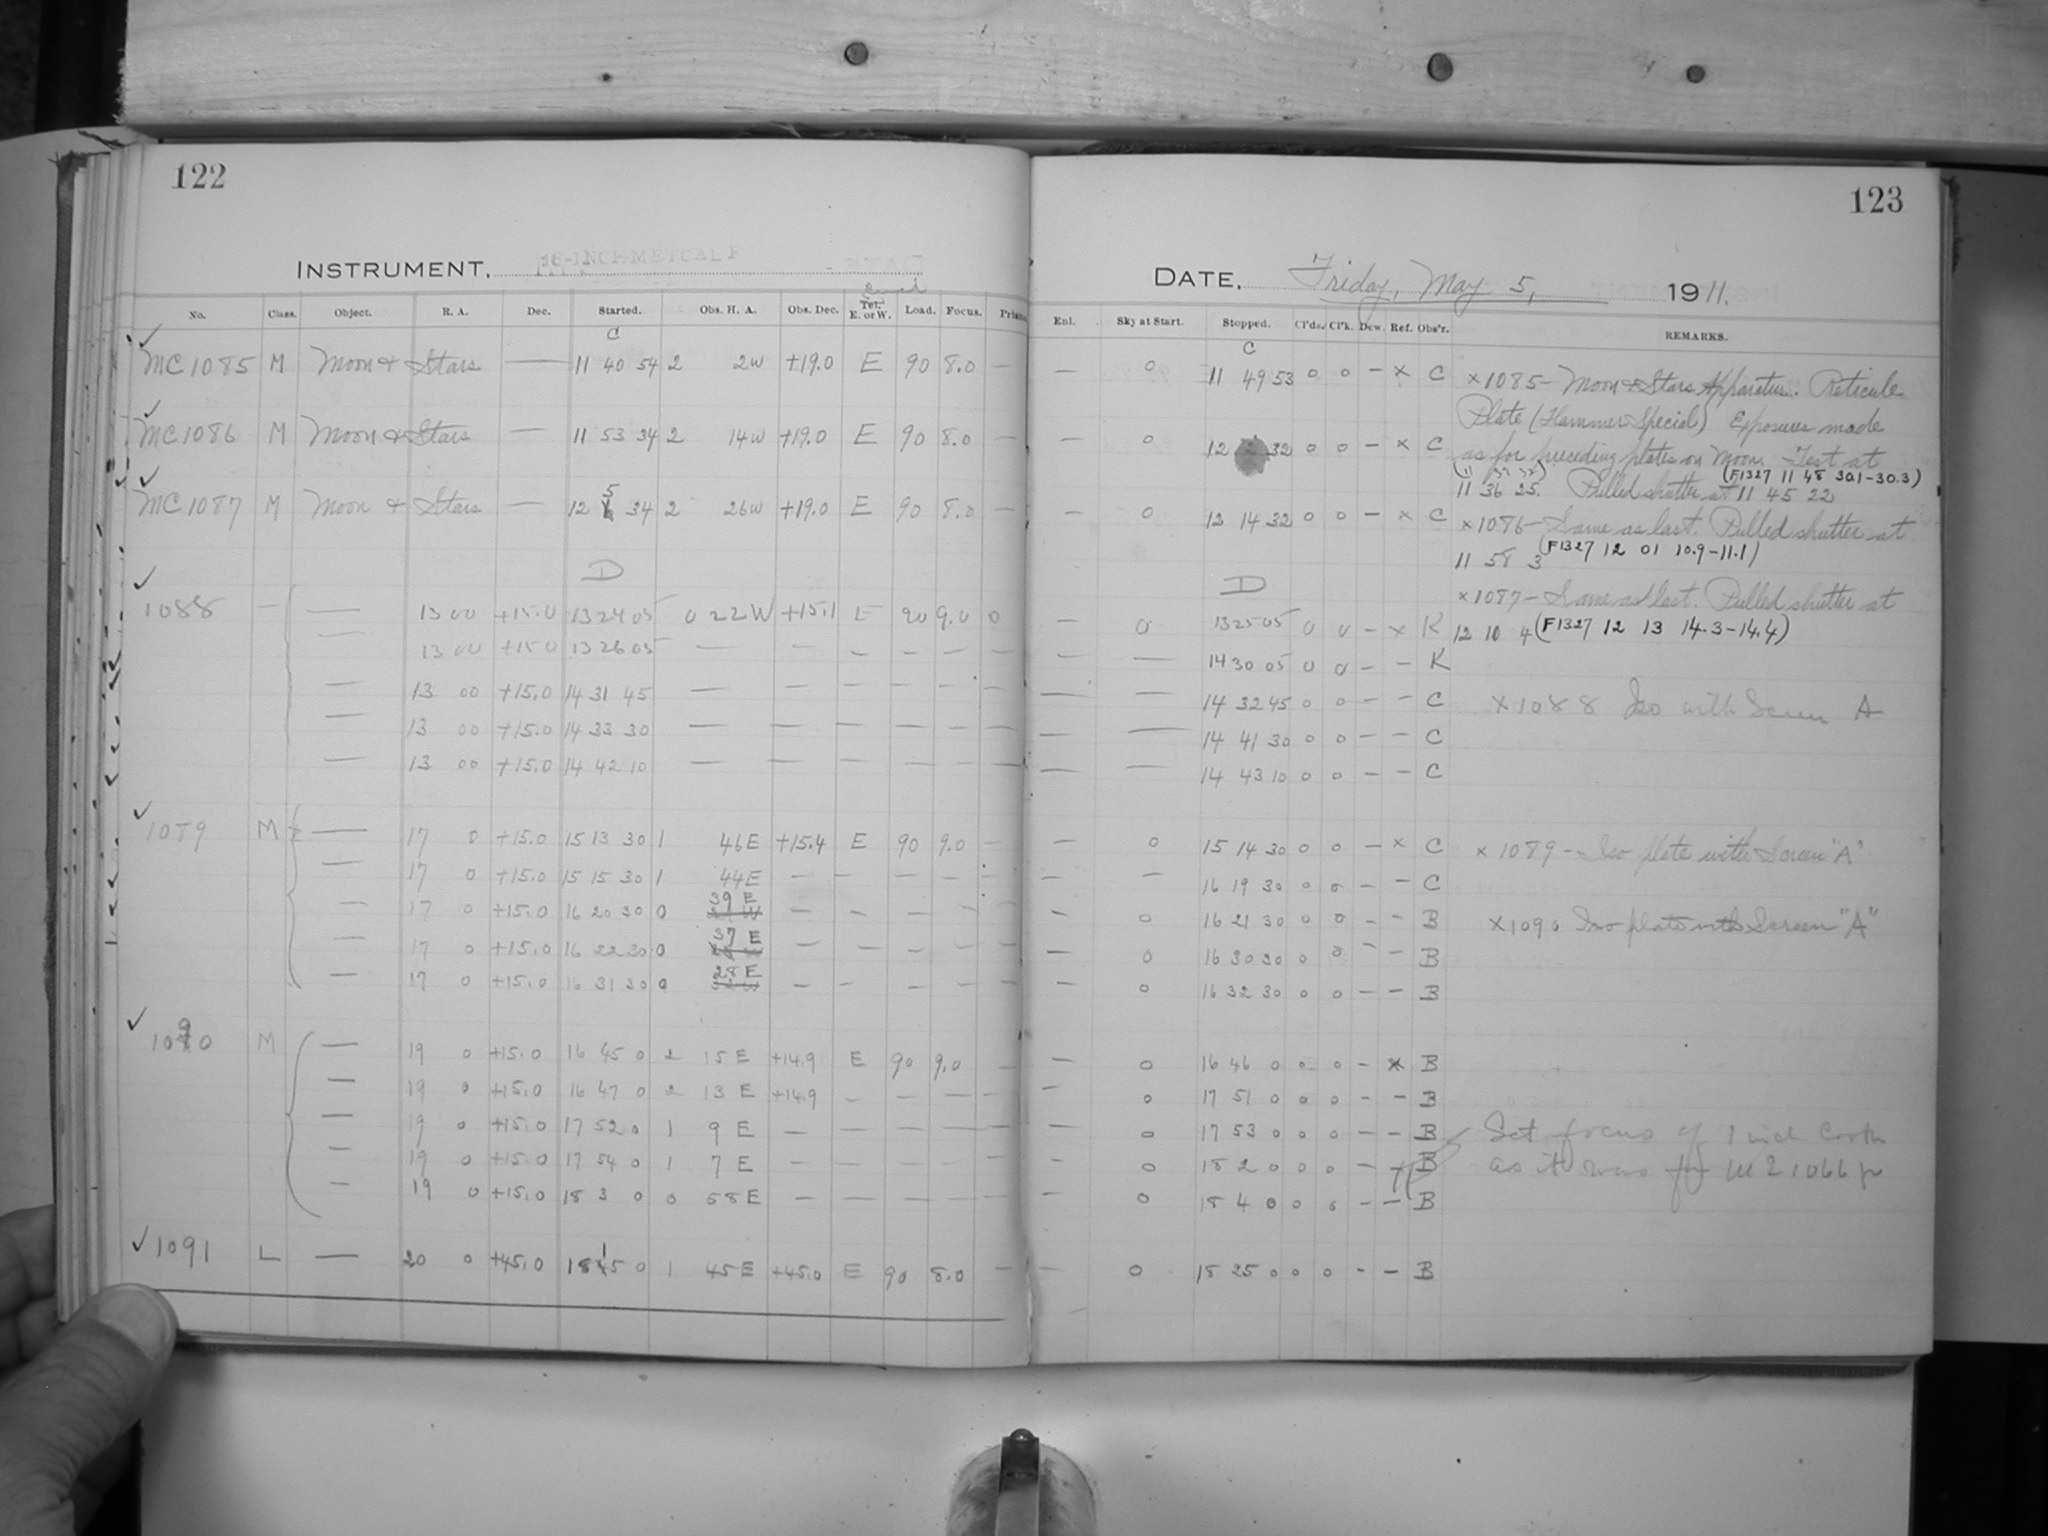 122
INSTRUMENT. 16-INCH METCALF
No. Class. Object. R. A. Dec. Started. Obs. H. A. Obs. Dec. Tel. E. or W. Load. Focus. Prism
C
MC1085 M Moon & Stars — 11 40 54 2 2W +19.0 E 90 8.0 —
MC1086 M Moon & Stars — 11 53 34 2 14W +19.0 E 90 8.0 —
MC1087 M Moon & Stars — 12 5 34 2 26W +19.0 E 90 8.0 —
D
1088 — — 13 00 +15.0 13 24 05 0 22W +15.1 E 90 9.0 0
— 13 00 +15.0 13 26 05 — — — — — —
— 13 00 +15.0 14 31 45 — — — — — —
— 13 00 +15.0 14 33 30 — — — — — —
— 13 00 +15.0 14 42 10 — — — — — —
1089 M — 17 0 +15.0 15 13 30 1 46E +15.4 E 90 9.0 —
— 17 0 +15.0 15 15 30 1 44E — — — — —
— 17 0 +15.0 16 20 30 0 39 E — — — — —
— 17 0 +15.0 16 22 30 0 37 E — — — — —
— 17 0 +15.0 16 31 30 0 28 E — — — — —
1090 M — 19 0 +15.0 16 45 0 2 15 E +14.9 E 90 9.0 —
— 19 0 +15.0 16 47 0 2 13 E +14.9 — — — —
— 19 0 +15.0 17 52 0 1 9 E — — — — —
— 19 0 +15.0 17 54 0 1 7 E — — — — —
— 19 0 +15.0 18 3 0 0 58E — — — — —
1091 L — 20 0 +45.0 18 15 0 1 45E +45.0 E 90 8.0 —
123
DATE. Friday, May 5, 1911.
Enl. Sky at Start. Stopped. Cl'ds. Cl'k. Dew. Ref. Obs'r. REMARKS.
C
— 0 11 49 53 0 0 — x C
— 0 12 2 32 0 0 — x C
— 0 12 14 32 0 0 — x C
D
— 0 13 25 05 0 0 — x K
— — 14 30 05 0 0 — — K
— — 14 32 45 0 0 — — C
— — 14 41 30 0 0 — — C
— — 14 43 10 0 0 — — C
— 0 15 14 30 0 0 — x C
— — 16 19 30 0 0 — — C
— 0 16 21 30 0 0 — — B
— 0 16 30 30 0 0 — — B
— 0 16 32 30 0 0 — — B
— 0 16 46 0 0 0 — x B
— 0 17 51 0 0 0 — — B
— 0 17 53 0 0 0 — — B
— 0 18 2 0 0 0 — B
— 0 18 4 0 0 0 — — B
— 0 18 25 0 0 0 — — B
x1085 - Moon & Stars Apparatus. Reticule
Plate (Hammer Special) Exposures made
as for preceding plates on Moon. Test at
(F1327 11 48 30.1-30.3)
11 36 25. Pulled shutter at 11 45 22
x1086 - Same as last. Pulled shutter at
11 58 3 (F1327 12 01 10.9-11.1)
x1087 - Same as last. Pulled shutter at
12 10 4 (F1327 12 13 14.3-14.4)
x1088 Iso with Screen A
x1089 - Iso plate with Screen "A"
x1090 Iso plate with Screen "A"
Set focus of 1 inch Cooke
as it was for MC 1066